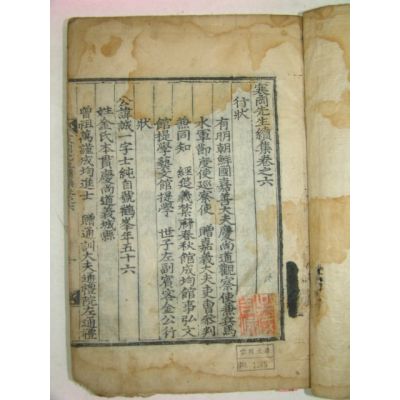 寒岡先生續集卷之六
行狀
有明朝鮮國嘉善大夫慶尚道觀察使兼兵馬
水軍節度使巡察使 贈嘉義大夫吏曹參判
兼同知 經筵義禁府春秋館成均館事弘文
館提學藝文館提學 世子左副賓客金公行
狀
公諱誠一字士純自號鶴峯年五十六
姓金氏本貫慶尚道義城縣
曾祖萬謹成均進士 贈通訓大夫通禮院左通禮